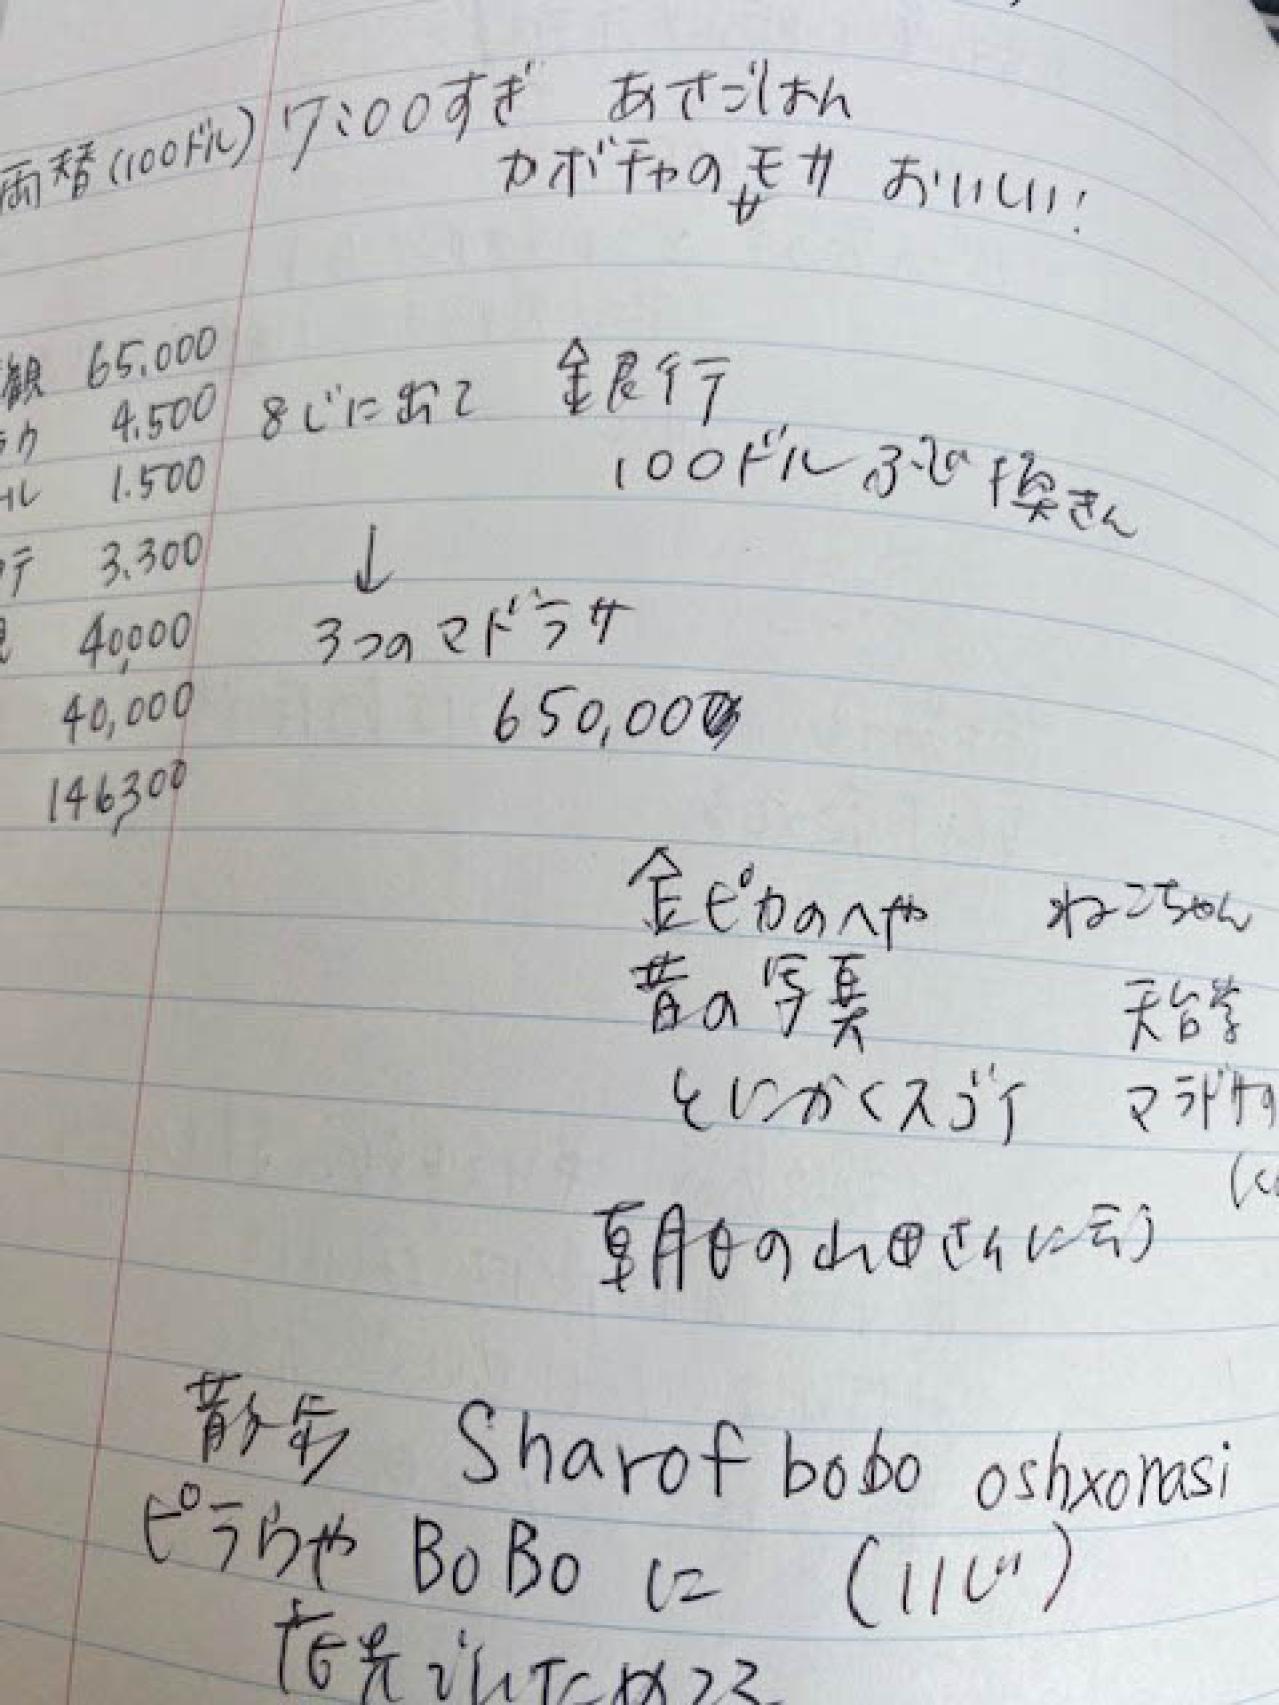 両替(100ドル) 7:00すぎ あさごはん
カボチャのモサ おいしい!
サ
観 65,000
4,500 8じに出て 銀行
ール 1.500 100ドル 換きん
テ 3.300 ↓
40,000 3つのマドラサ
40,000 650,000
146,300
金ピカのへや ねこちゃん
昔の写真 天台学
とにかくスゴイ マラドサ
朝日の山田さんに云う
散歩 Sharof bobo oshxonasi
ピラウや BoBo に (11じ)